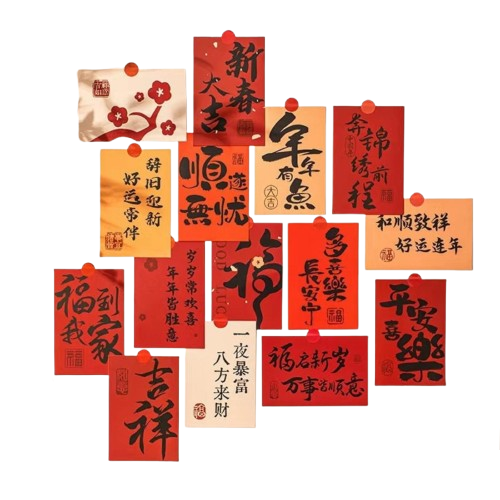 新春
大吉
辞旧迎新
好运常伴
順遂
無忧
年年
有魚
大吉
奔
锦绣前程
和顺致祥
好运连年
岁岁常欢喜
年年皆胜意
福
多喜樂
長安宁
平安
喜樂
福到
我家
一夜暴富
八方来财
福启新岁
万事皆順意
吉祥